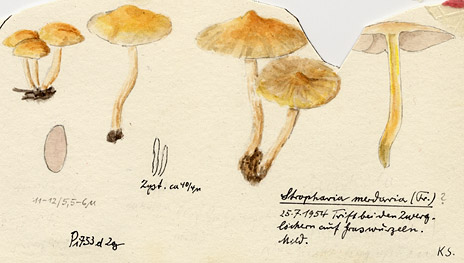 Zyst. ca 40/4µ
11-12/5,5-6µ
Stropharia merdaria (Fr.) ?
25.7.1954 Trift bei den Zwerg-
löchern auf Graswurzeln.
Mild.
K S.